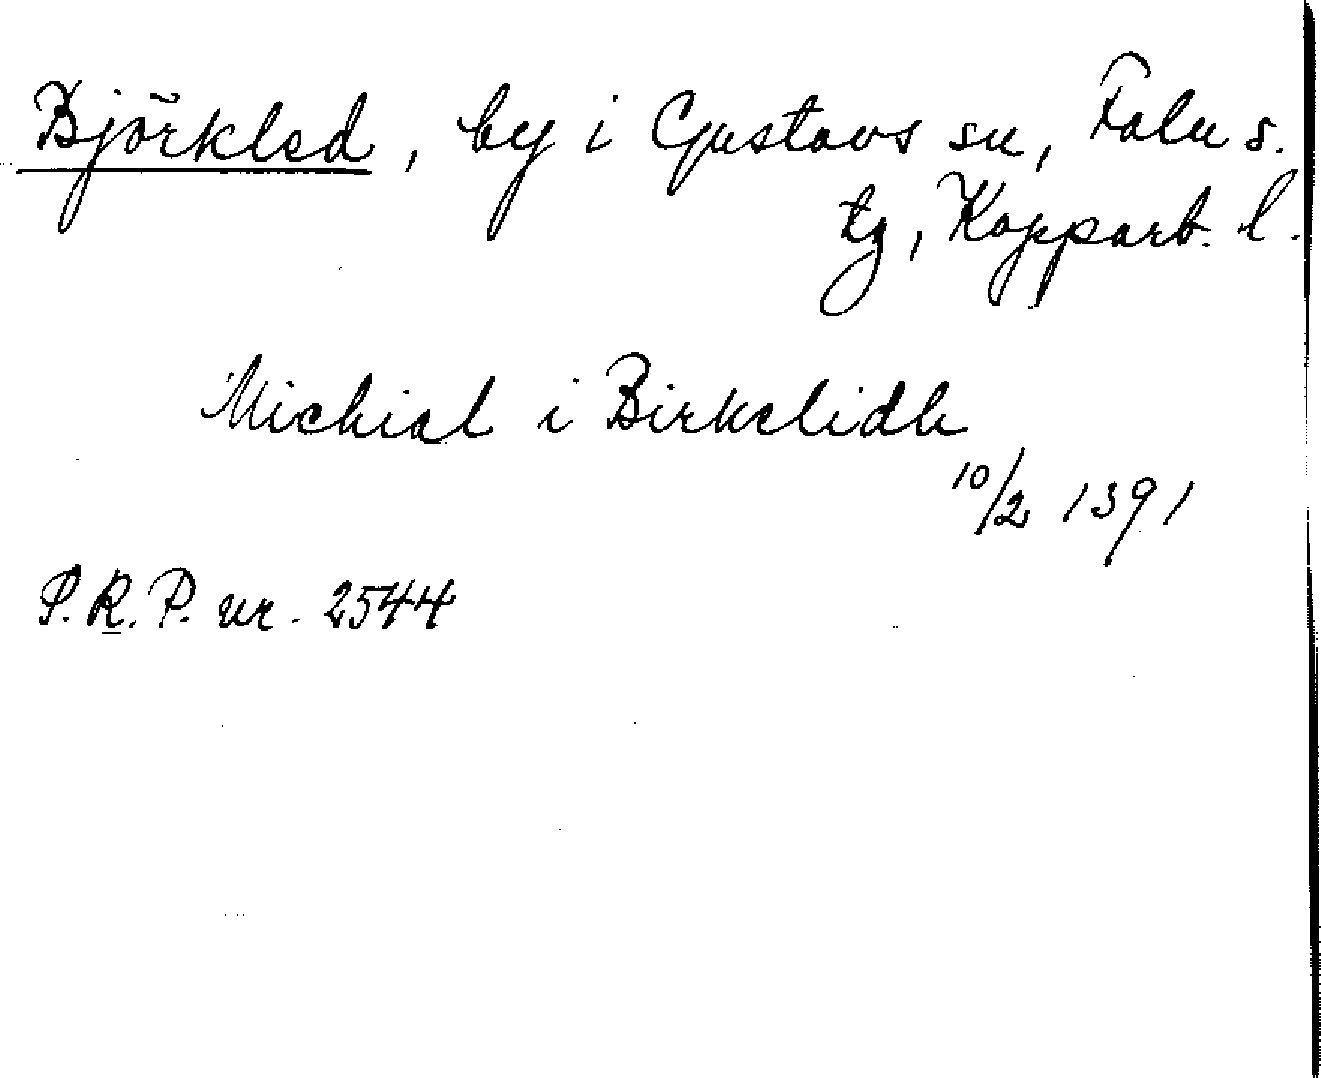 Björkled, by i Gustavs sn, Falu s.
tg, Kopparb. l.
Michial i Birkelidh
10/2 1391
P.R.P. nr. 2544